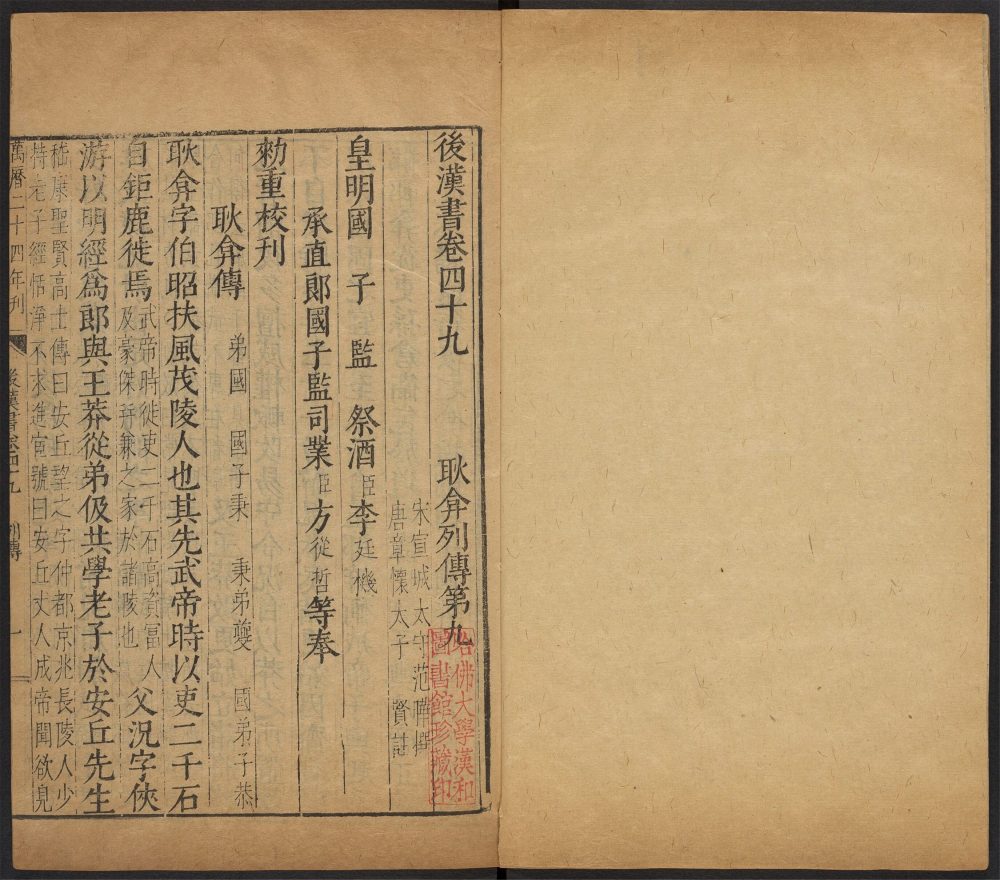 後漢書卷四十九 耿弇列傳第九
宋宣城太守范曄撰
唐章懷太子賢註
皇明國子監祭酒臣李廷機
承直郎國子監司業臣方從哲等奉
勑重校刊
耿弇傳 弟國 國子秉 秉弟夔 國弟子恭
耿弇字伯昭扶風茂陵人也其先武帝時以吏二千石
自鉅鹿徙焉武帝時徙吏二千石高資富人及豪傑并兼之家於諸陵也父況字俠
游以明經爲郎與王莽從弟伋共學老子於安丘先生
嵇康聖賢高士傳曰安丘望之字仲都京兆長陵人少
持老子經恬淨不求進宦號曰安丘丈人成帝聞欲見
萬曆二十四年刊 後漢書卷四十九 列傳 一
哈佛大學漢和圖書館珍藏印